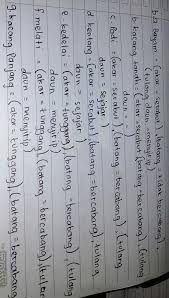 b.a Bayam = (akar = serabut), (batang = tidak bercabang)
(tulang daun = menyirip)
b kacang tanah = (akar = serabut), (batang = bercabang), (tulang
daun =
c. Padi = (akar = serabut), (batang = bercabang), (tulang
daun = sejajar)
d kentang = (akar = serabut), (batang = bercabang), tulang
daun = sejajar)
e kedelai = (akar = tunggang), (batang = bercabang), (tulang
daun = menyirip)
f. melati = (akar = tunggang), (batang = bercabang),
daun = menyirip)
g kacang Panjang = (akar = tunggang), (batang = bercabang)